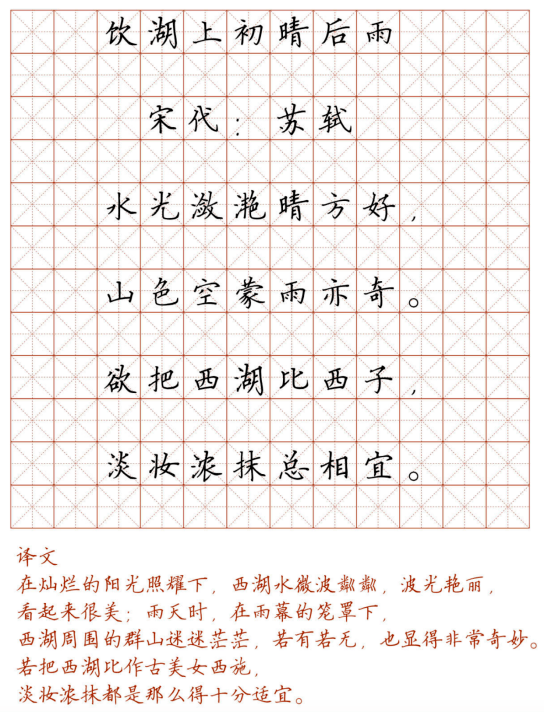 饮湖上初晴后雨
宋代：苏轼
水光潋滟晴方好，
山色空蒙雨亦奇。
欲把西湖比西子，
淡妆浓抹总相宜。
译文
在灿烂的阳光照耀下，西湖水微波粼粼，波光艳丽，
看起来很美；雨天时，在雨幕的笼罩下，
西湖周围的群山迷迷茫茫，若有若无，也显得非常奇妙。
若把西湖比作古美女西施，
淡妆浓抹都是那么得十分适宜。